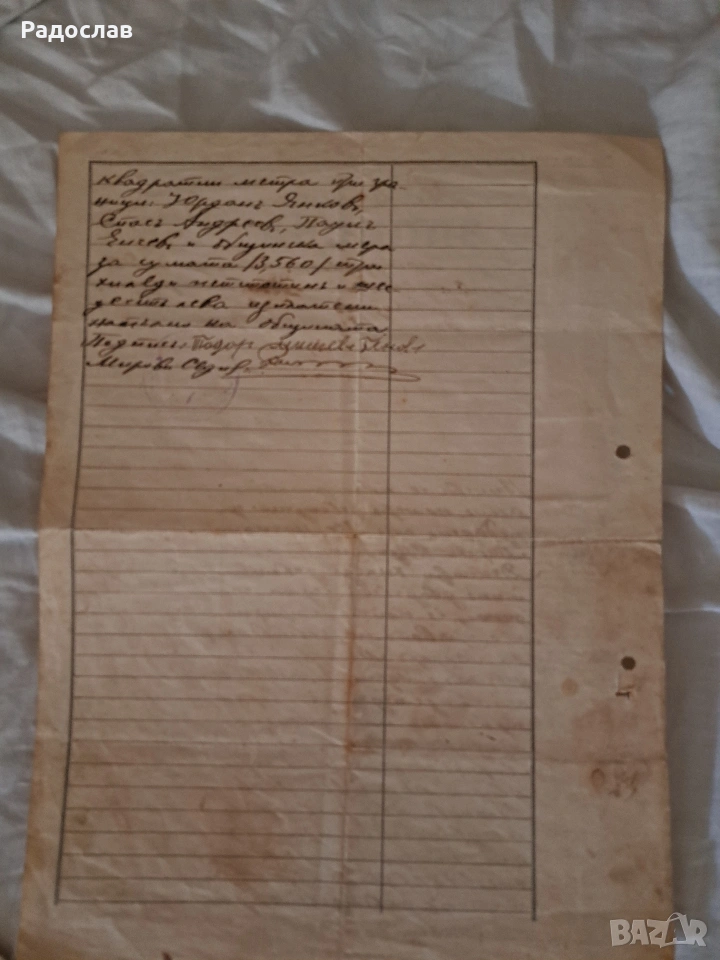 Радослав
квадратни метра при гра-
ници: Юрданъ Янковъ,
Спасъ Андреевъ, Паунъ
Енчевъ и общинска мера
за сумата /3,560/ три
хиляди петстотинъ и шес
десеть лева изплатени
напълно на общината
Подпис: Тодор Янковъ
Мирови Съдия:
BAZAR